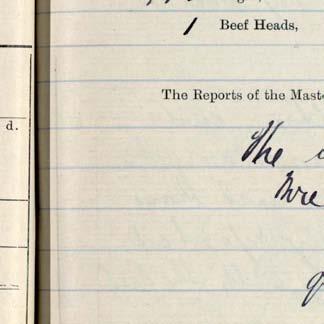 d.
1 Beef Heads,
The Reports of the Mast
The